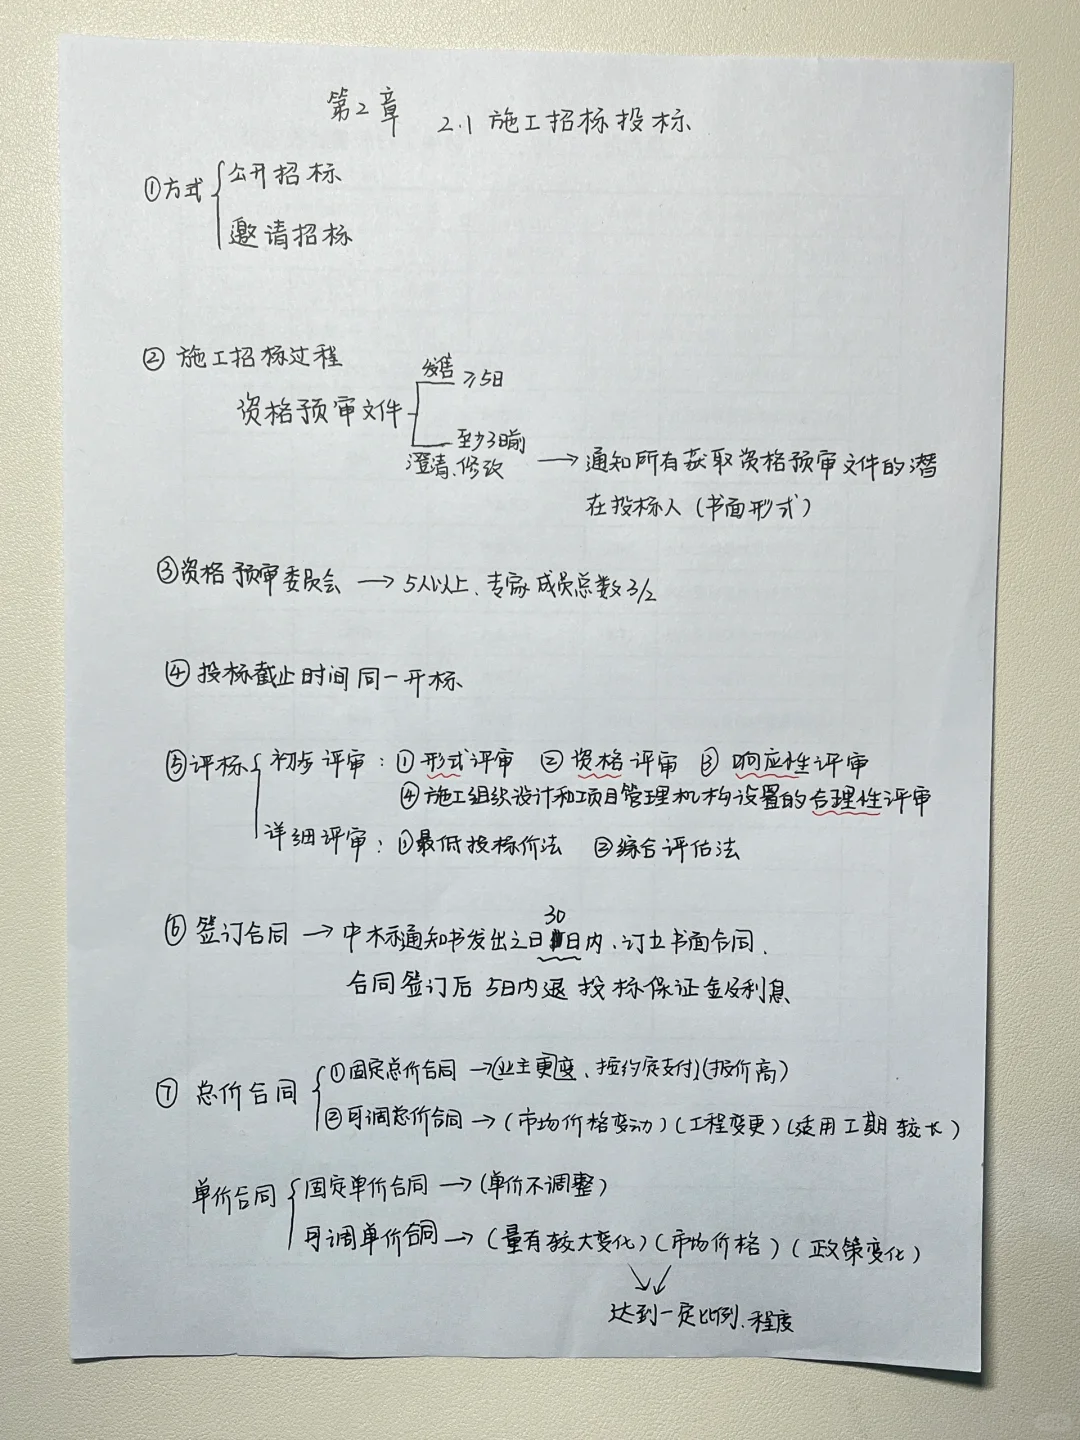 第2章 2.1 施工招标投标
①方式 公开招标
邀请招标
② 施工招标过程
发售 ≥5日
资格预审文件
至少3日前
澄清、修改 → 通知所有获取资格预审文件的潜
在投标人(书面形式)
③资格预审委员会 → 5人以上、专家成员总数3/2
④ 投标截止时间同一开标
⑤评标 初步评审: ①形式评审 ②资格评审 ③响应性评审
④施工组织设计和项目管理机构设置的合理性评审
详细评审: ①最低投标价法 ②综合评估法
⑥ 签订合同 → 中标通知书发出之日30日内、订立书面合同、
合同签订后 5日内退投标保证金及利息
⑦ 总价合同 ①固定总价合同 → (业主更变、按约定支付)(报价高)
②可调总价合同 → (市场价格变动)(工程变更)(适用工期较长)
单价合同 固定单价合同 → (单价不调整)
可调单价合同 → (量有较大变化)(市场价格)(政策变化)
达到一定比例、程度